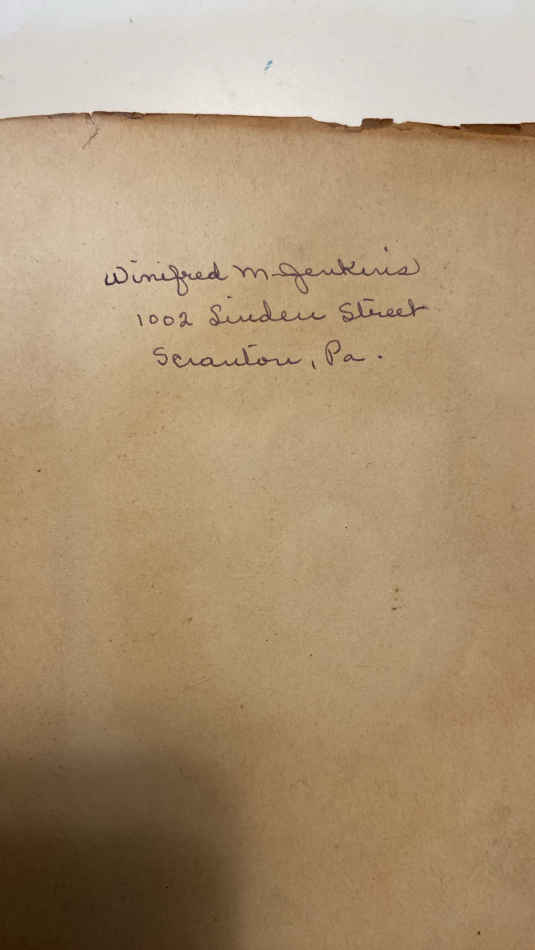 Winifred M. Jenkins
1002 Linden Street
Scranton, Pa.